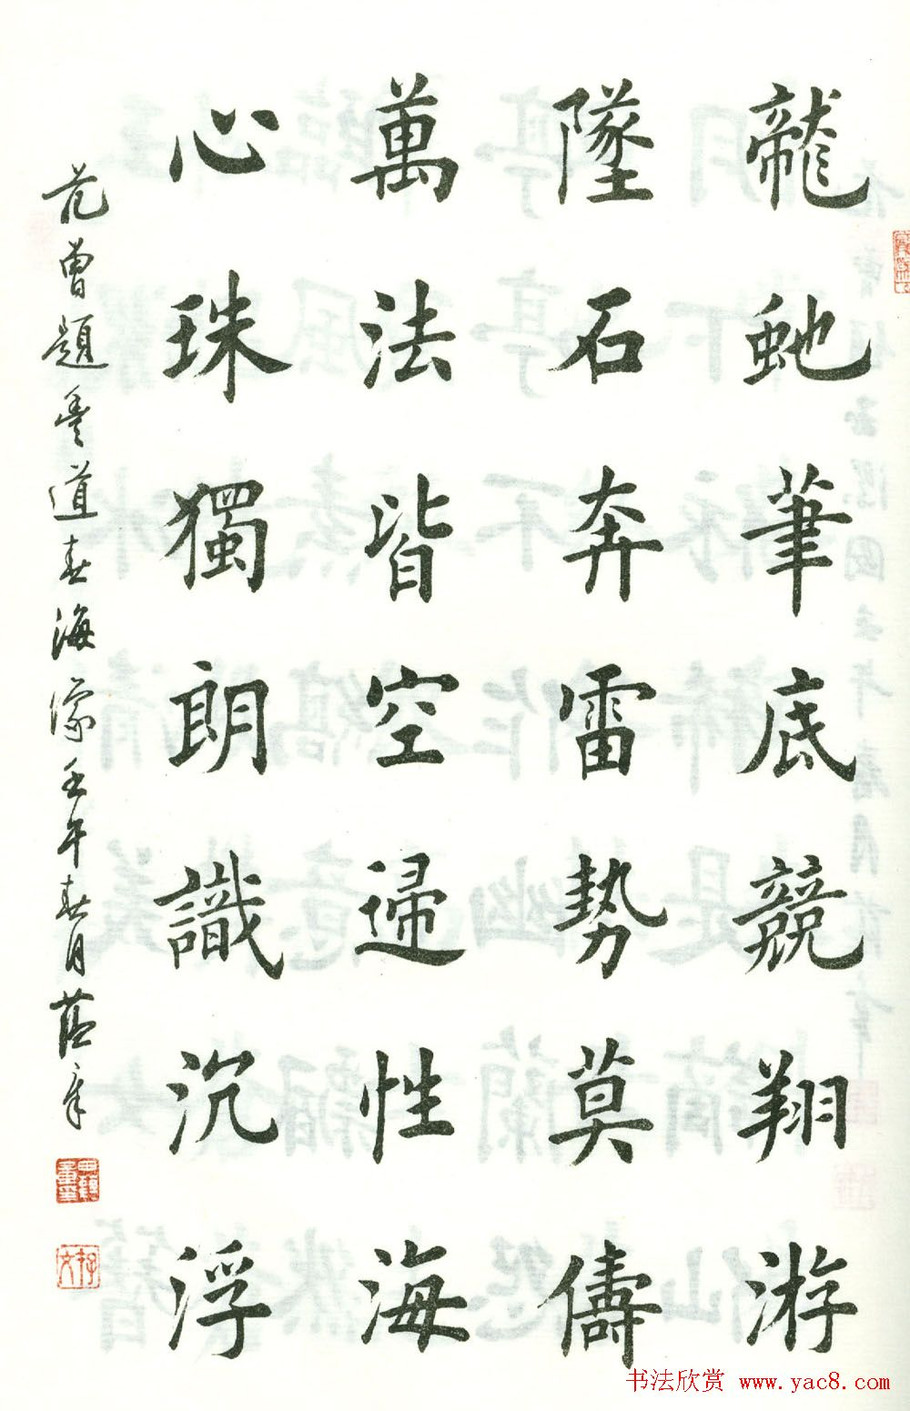 龍虵筆底競翔游
墜石奔雷勢莫儔
萬法皆空歸性海
心珠獨朗識沉浮
范曾題 道 海 壬午春月
书法欣赏 www.yac8.com